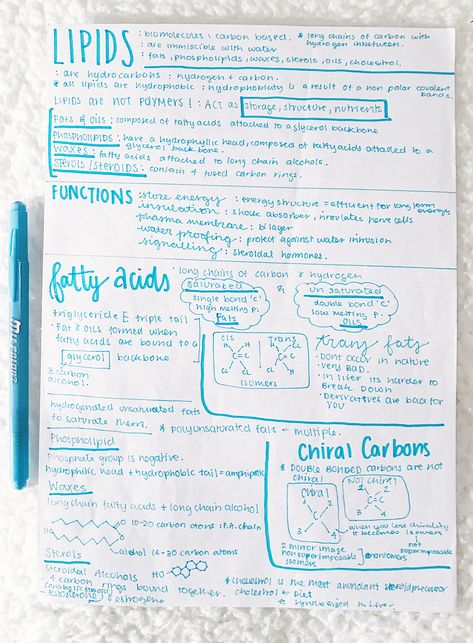 LIPIDS
: biomolecules : carbon based. * long chains of carbon with hydrogen inbetween.
: are immiscible with water
: fats, phospholipids, waxes, sterols, oils, cholestrol.
: are hydrocarbons : hydrogen + carbon.
* all lipids are hydrophobic : hydrophobiaty is a result of a non polar covalent bonds.
LIPIDS are not polymers! : ACT as storage, structure, nutrients
Fats & oils : composed of fatty acids attached to a glycerol backbone.
Phospholipids : have a hydrophyllic head, composed of fatty acids attatched to a
glycerol back bone.
Waxes : fatty acids attached to long chain alcohols.
Sterols/Steroids : contain 4 fused carbon rings.
FUNCTIONS
: store energy : energy structure = efficient for long term energy
insulation : shock absorber, insulates nerve cells
plasma membrane : bilayer
water proofing : protect against water intrusion
signalling : steroidal hormones.
fatty acids
: long chains of carbon & hydrogen
saturated
single bond 'c'
high melting p.
Fats
&
unsaturated
double bond 'c'
low melting p.
OILS
triglyceride E triple tail
• Fat & oils formed when
fatty acids are bound to a
glycerol backbone
3 carbon
alcohol.
Cis
Trans
H
Cl
C
C
isomers
trans fats
• Dont occur in nature
• very bad.
• in liver its harder to
Break down
• Derivatives are bad for
you
hydrogenated unsaturated fats
to saturate them.
* polyunsaturated fats - multiple.
Phospholipid
phosphate group is negative.
hydrophilic head + hydrophobic tail = amphipatic
Waxes
long chain fatty acids + long chain alcohol
10-20 carbon atoms : F.A. chain
alcohol 16-30 carbon atoms
Chiral Carbons
* DOUBLE BONDED carbons are not
chiral
Chiral
1
2
3
4
C
Not chiral
1
2
C=C
when you lose chirality
it becomes isomers
not
superimposable
2 mirror image
non superimposable
isomers
Sterols
steroidal Alcohols
HO
- 4 carbon rings bound together.
(anabolic steroids)
testosterone
estrogene
* cholesterol is the most abundant steroid precursor
cholesterol ← Diet
synthesized in Liver.
Mildliner